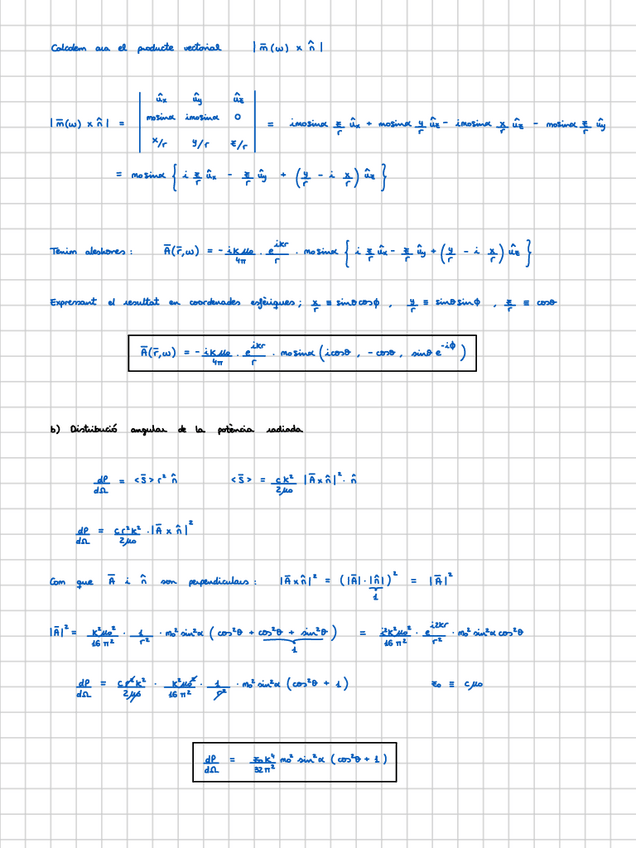 Calculem ara el producte vectorial |m̄(ω) x n̂|
|m̄(ω) x n̂| = | ûx ûy ûz ; mosinα imosinα 0 ; x/r y/r z/r | = imosinα z/r ûx + mosinα y/r ûz - imosinα x/r ûz - mosinα z/r ûy
= mosinα { i z/r ûx - z/r ûy + (y/r - i x/r) ûz }
Tenim aleshores: Ā(r̄,ω) = - ikμo/4π · e^ikr/r · mosinα { i z/r ûx - z/r ûy + (y/r - i x/r) ûz }
Expressant el resultat en coordenades esfèriques; x/r ≡ sinθcosϕ , y/r ≡ sinθsinϕ , z/r ≡ cosθ
Ā(r̄,ω) = - ikμo/4π · e^ikr/r · mosinα (icosθ , -cosθ , sinθ e^-iϕ)
b) Distribució angular de la potència radiada
dP/dΩ = <S̄> r² n̂ <S̄> = ck²/2μo |Ā x n̂|² · n̂
dP/dΩ = cr²k²/2μo · |Ā x n̂|²
Com que Ā i n̂ son perpendiculars: |Ā x n̂|² = (|Ā| · |n̂|)² = |Ā|²
1
|Ā|² = k²μo²/16π² · 1/r² · mo² sin²α (cos²θ + cos²θ + sin²θ) = i²k²μo²/16π² · e^i2kr/r² · mo² sin²α cos²θ
1
dP/dΩ = cr²k²/2μo · k²μo²/16π² · 1/r² · mo² sin²α (cos²θ + 1) zo ≡ cμo
dP/dΩ = zok⁴/32π² mo² sin²α (cos²θ + 1)